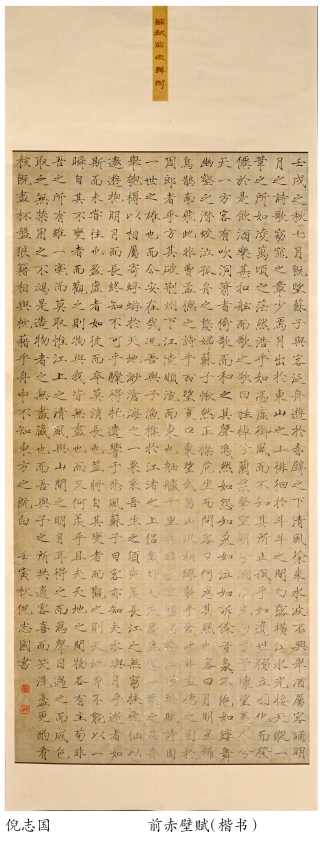 蘇軾前赤壁賦
壬戌之秋七月既望蘇子與客泛舟遊於赤壁之下清風徐來水波不興舉酒屬客誦明
月之詩歌窈窕之章少焉月出於東山之上徘徊於斗牛之間白露橫江水光接天縱一
葦之所如凌萬頃之茫然浩乎如憑虛御風而不知其所止飄乎如遺世獨立羽化而登
僊於是飲酒樂甚扣舷而歌之歌曰桂棹兮蘭槳擊空明兮溯流光渺渺兮予懷望美人兮
天一方客有吹洞簫者倚歌而和之其聲嗚然如怨如慕如泣如訴餘音裊裊不絕如縷舞
幽壑之潛蛟泣孤舟之嫠婦蘇子愀然正襟危坐而問客曰何爲其然也客曰月明星稀
烏鵲南飛此非曹孟德之詩乎西望夏口東望武昌山川相繆鬱乎蒼蒼此非孟德之困於
周郎者乎方其破荆州下江陵順流而東也舳艫千里旌旗蔽空釃酒臨江橫槊賦詩固
一世之雄也而今安在哉況吾與子漁樵於江渚之上侶魚蝦而友麋鹿駕一葉之扁舟
舉匏樽以相屬寄蜉蝣於天地渺滄海之一粟哀吾生之須臾羨長江之無窮挾飛仙以
遨遊抱明月而長終知不可乎驟得托遺響于悲風蘇子曰客亦知夫水與月乎逝者如
斯而未嘗往也盈虛者如彼而卒莫消長也蓋將自其變者而觀之則天地曾不能以一
瞬自其不變者而觀之則物與我皆無盡也而又何羨乎且夫天地之間物各有主苟非
吾之所有雖一毫而莫取惟江上之清風與山間之明月耳得之而爲聲目遇之而成色
取之無禁用之不竭是造物者之無盡藏也而吾與子之所共適客喜而笑洗盞更酌肴
核既盡杯盤狼籍相與枕藉乎舟中不知東方之既白 壬寅秋倪志國書
倪志国 前赤壁赋(楷书)